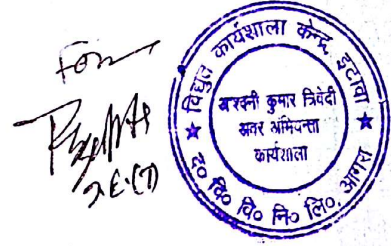 For
विद्युत कार्यशाला केन्द्र, इटावा
अश्वनी कुमार त्रिवेदी
अवर अभियन्ता
कार्यशाला
द० वि० वि० नि० लि०, आगरा